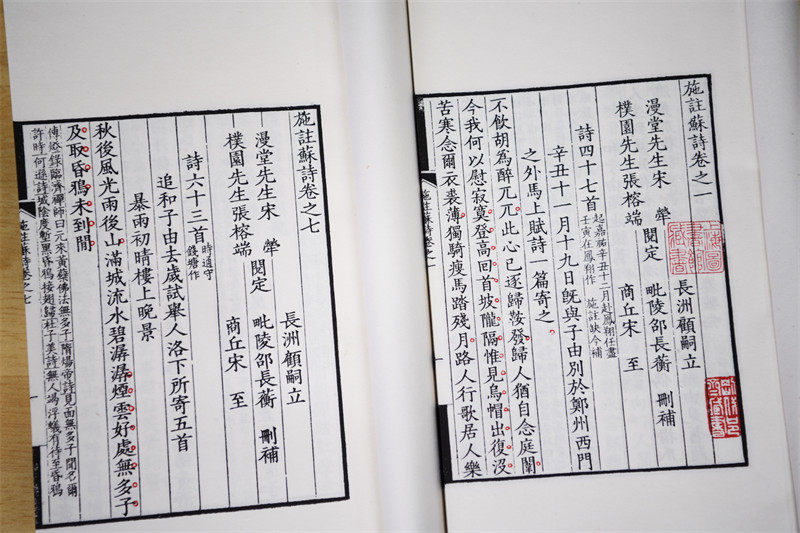 施註蘇詩卷之一
漫堂先生宋 犖
樸園先生張榕端
閱定
長洲顧嗣立
毗陵邵長蘅
商丘宋 至
刪補
詩四十七首 起嘉祐辛丑十二月赴鳳翔任盡
壬寅在鳳翔作 施註缺今補
辛丑十一月十九日旣與子由別於鄭州西門
之外馬上賦詩一篇寄之
不飲胡爲醉兀兀此心已逐歸鞍發歸人猶自念庭闈
今我何以慰寂寞登高回首坡隴隔惟見烏帽出復沒
苦寒念爾衣裘薄獨騎瘦馬踏殘月路人行歌居人樂
施註蘇詩卷一
上海圖書館藏書
施註蘇詩卷之七
漫堂先生宋 犖
樸園先生張榕端
閱定
長洲顧嗣立
毗陵邵長蘅
商丘宋 至
刪補
詩六十三首 時通守
錢塘作
追和子由去歲試舉人洛下所寄五首
暴雨初晴樓上晚景
秋後風光雨後山滿城流水碧潺潺煙雲好處無多子
及取昏鴉未到閒
傳燈錄臨濟禪師曰元來黃蘗佛法無多子隋煬帝詩見面無多子聞名爾
許時何遜詩城陰度塹黑昏鴉接翅歸杜子美詩無人竭浮蟻有待至昏鴉
施註蘇詩卷之七